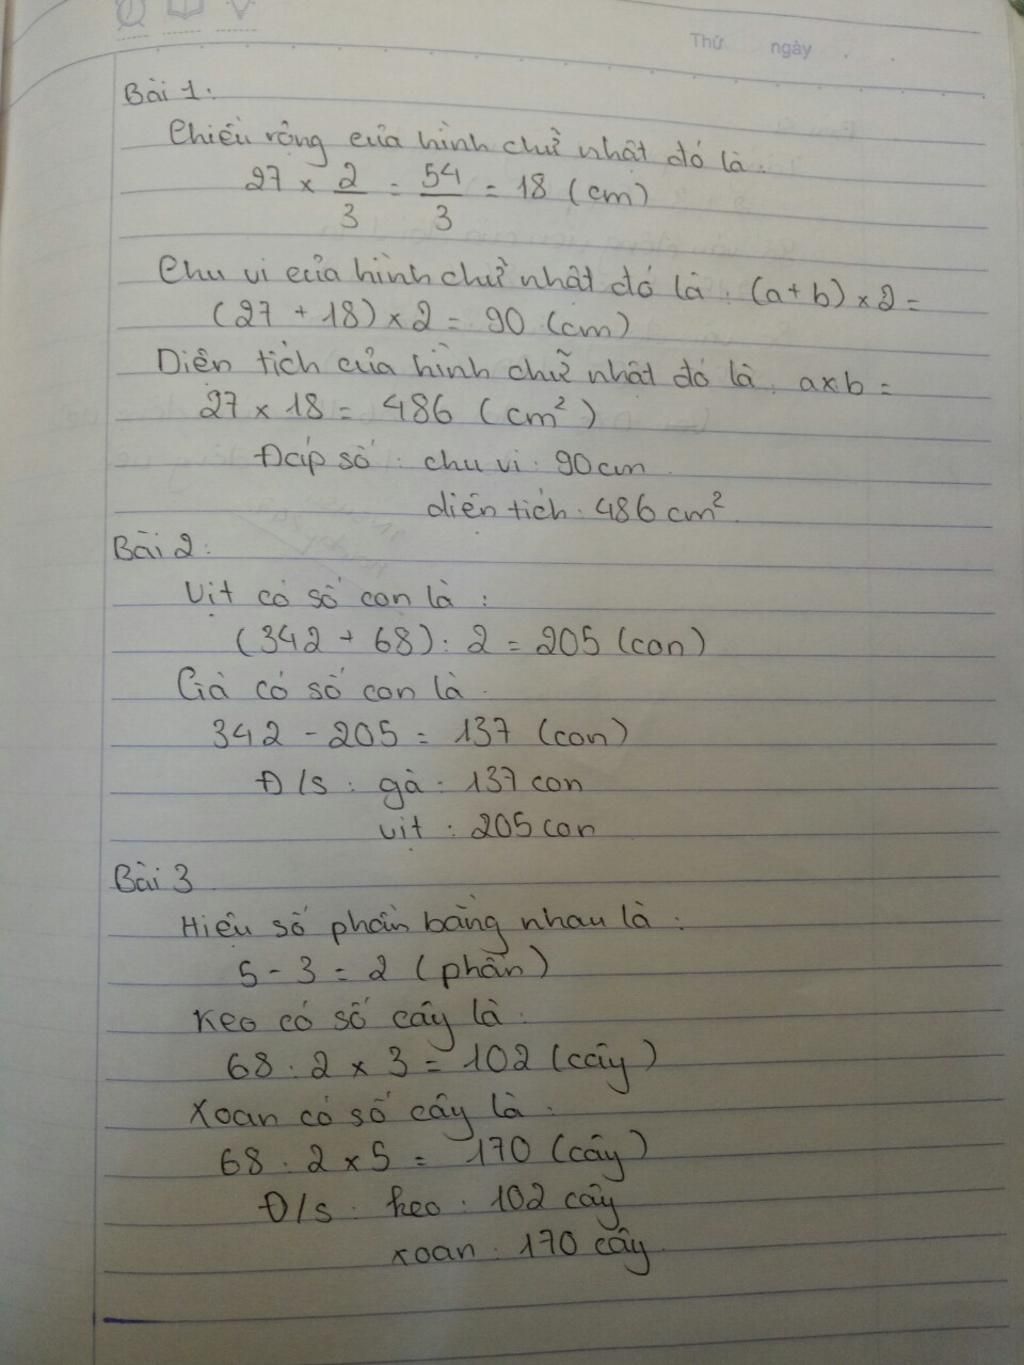 Thứ ngày
Bài 1:
Chiều rộng của hình chữ nhật đó là:
27 × 2/3 = 54/3 = 18 (cm)
Chu vi của hình chữ nhật đó là: (a+b) × 2 =
(27 + 18) × 2 = 90 (cm)
Diện tích của hình chữ nhật đó là: a×b =
27 × 18 = 486 (cm²)
Đáp số: chu vi: 90cm
diện tích: 486 cm²
Bài 2:
Vịt có số con là:
(342 + 68) : 2 = 205 (con)
Gà có số con là:
342 - 205 = 137 (con)
Đ/s: gà: 137 con
vịt: 205 con
Bài 3
Hiệu số phần bằng nhau là:
5 - 3 = 2 (phần)
Keo có số cây là:
68 : 2 × 3 = 102 (cây)
Xoan có số cây là:
68 : 2 × 5 = 170 (cây)
Đ/s: keo: 102 cây
xoan: 170 cây